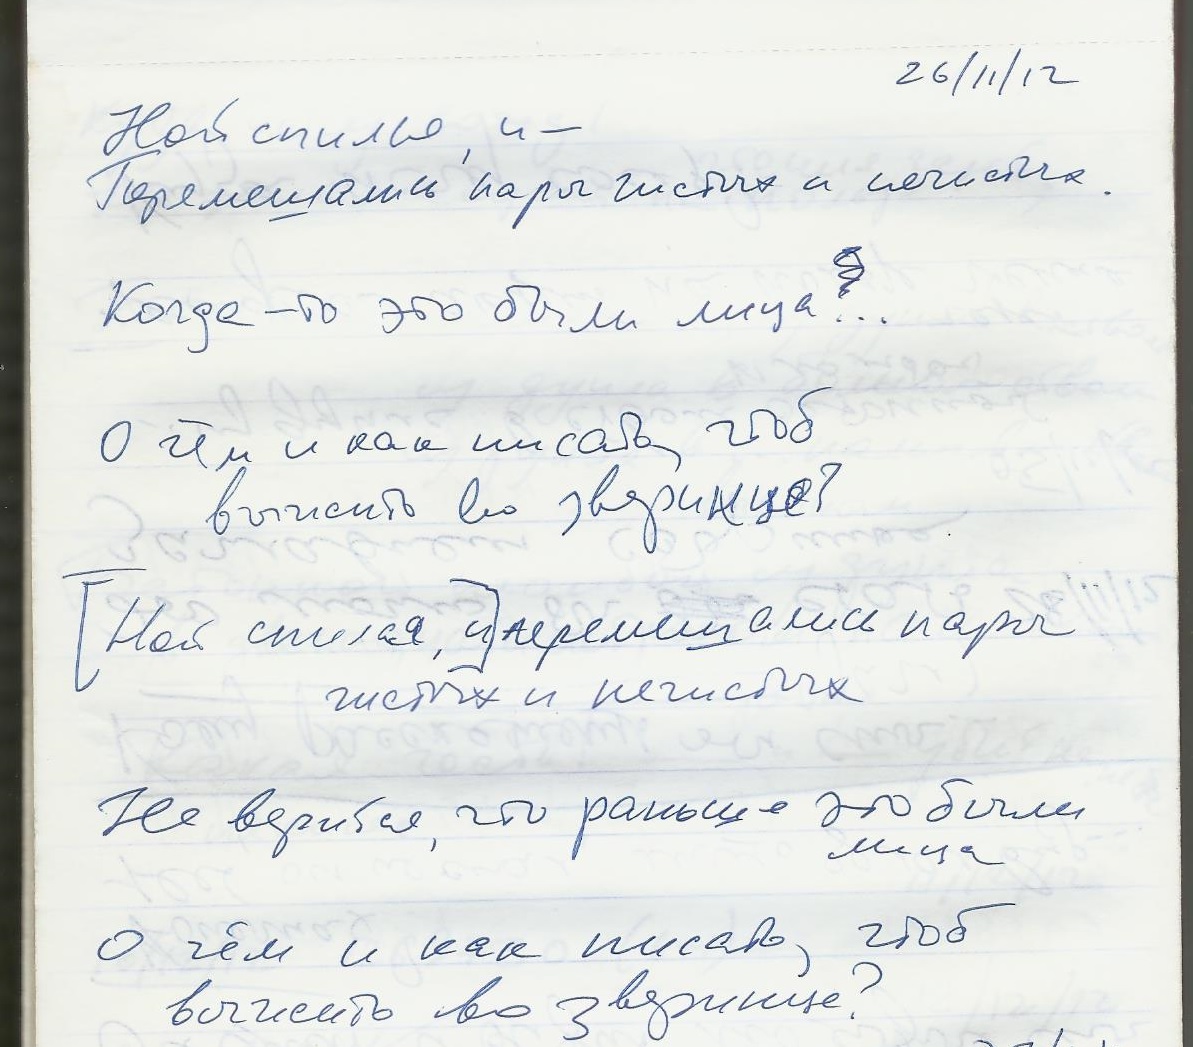 26/11/12
Ной спился, и –
Перемешались пары чистых и нечистых.
Когда-то это были лица?..
О чём и как писать, чтоб
выжить во зверинце?
[Ной спился, и] перемешались пары
чистых и нечистых
Не верится, что раньше это были
лица
О чём и как писать, чтоб
выжить во зверинце?